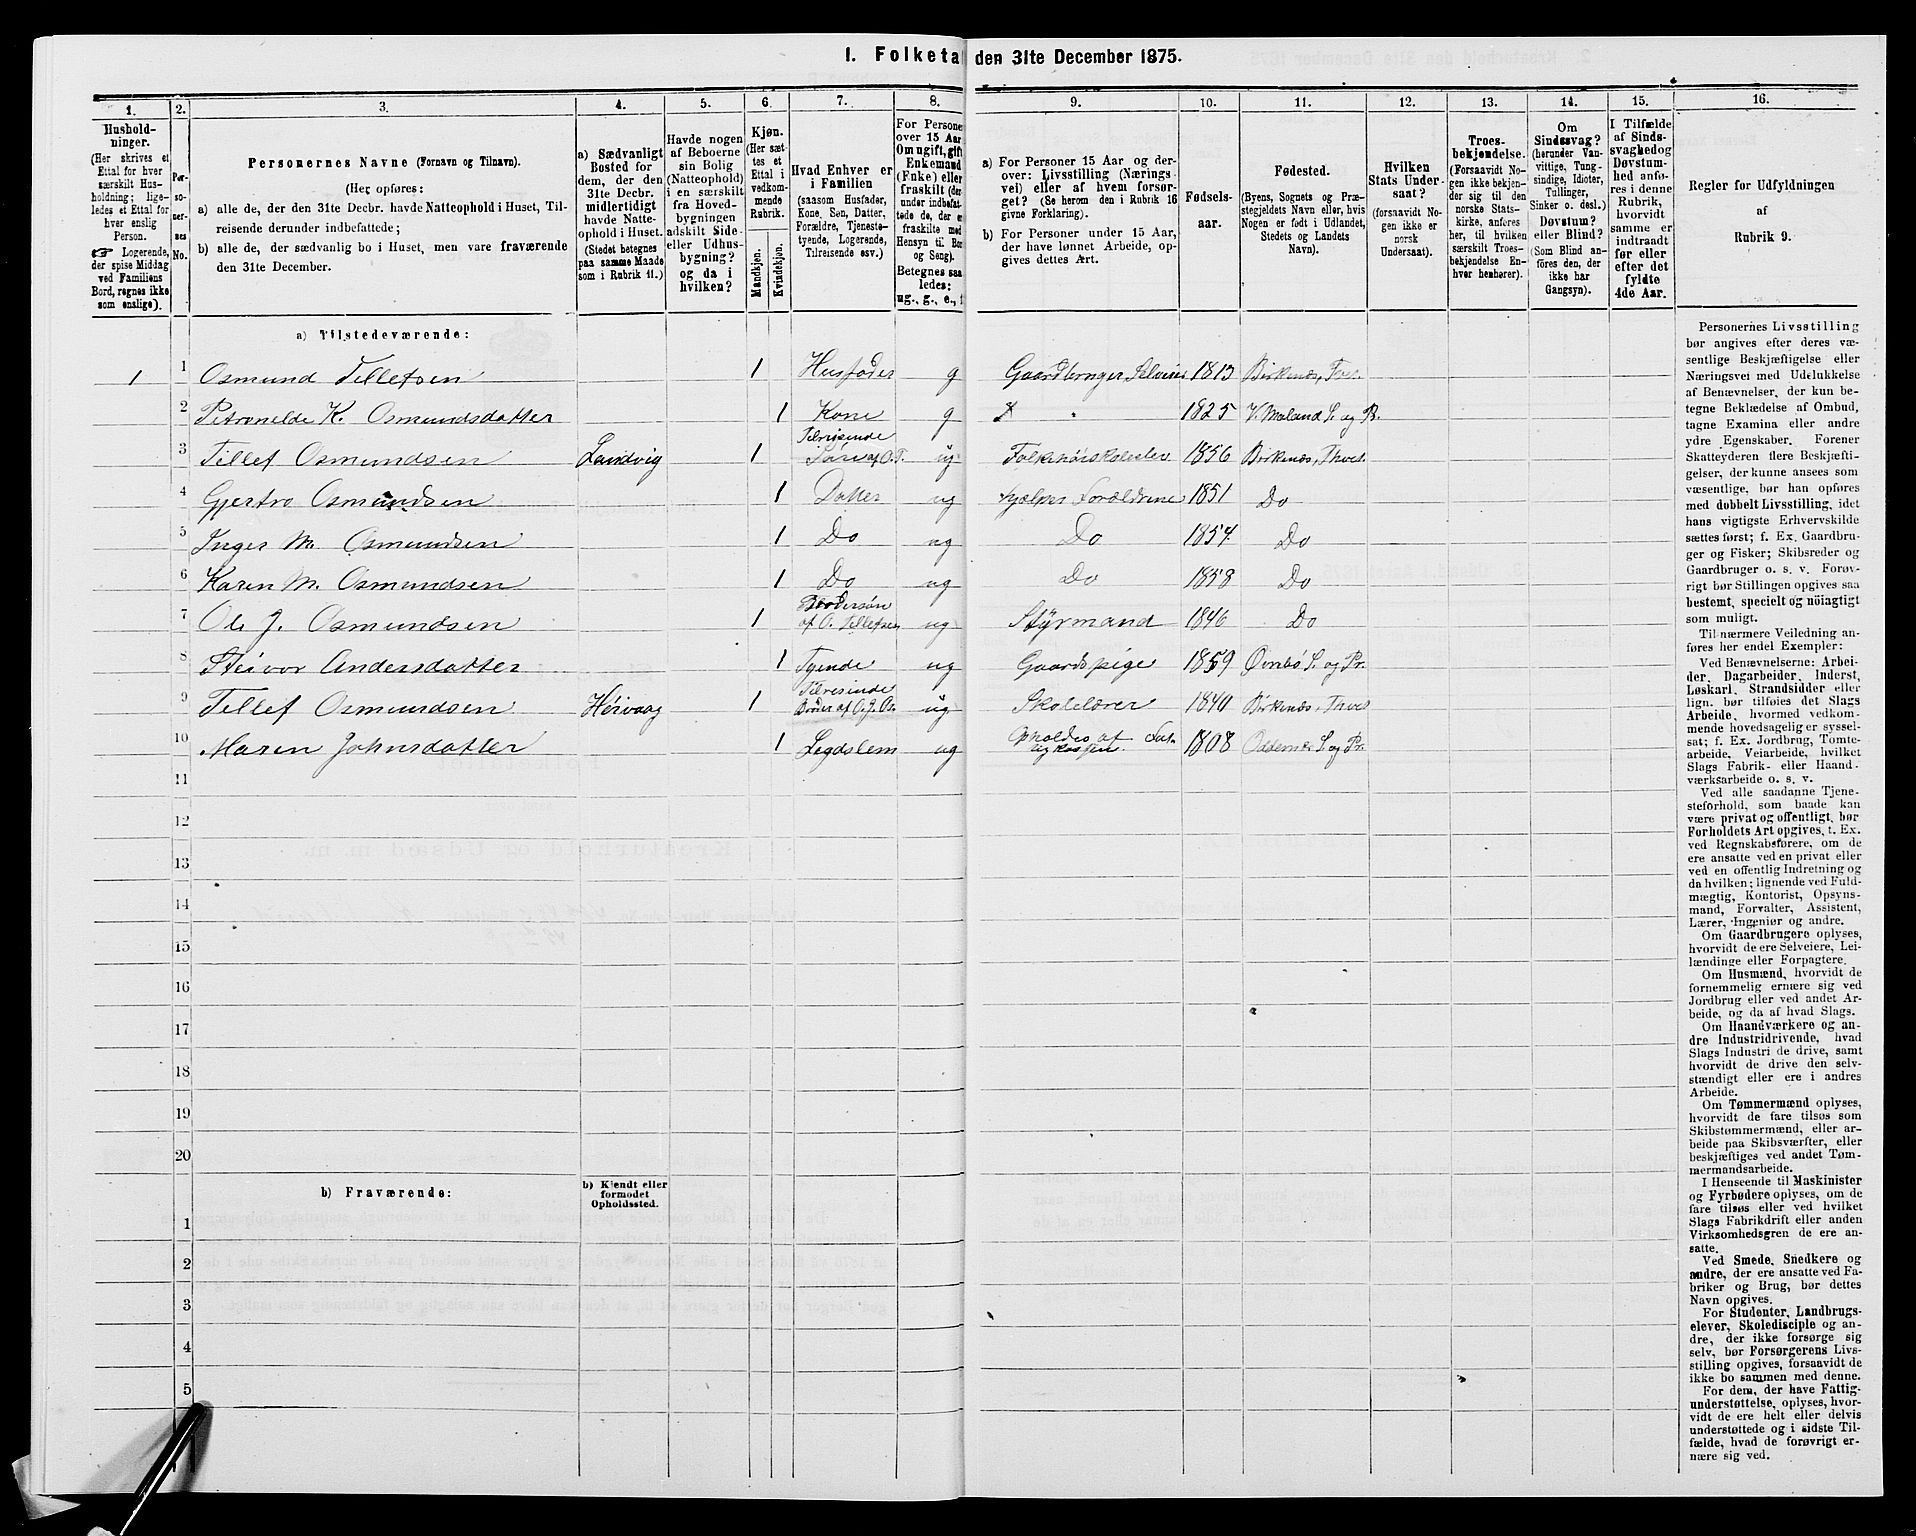 1. Folketal den 31te December 1875.
1. 2. 3. 4. 5. 6. 7. 8. 9. 10. 11. 12. 13. 14. 15. 16.
Hushold-
ninger.
(Her skrives et
Ettal for hver
særskilt Hus-
holdning; lige-
ledes et Ettal for
hver enslig
Person.
☞ Logerende,
der spise Middag
ved Familiens
Bord, regnes ikke
som enslige).
Per-
so-
ner-
nes
No.
Personernes Navne (Fornavn og Tilnavn).
(Her opføres:
a) alle de, der den 31te Decbr. havde Natteophold i Huset, Til-
reisende derunder indbefattede;
b) alle de, der sædvanlig bo i Huset, men vare fraværende
den 31te December.
a) Sædvanligt
Bosted for
dem, der den
31te Decbr.
midlertidigt
havde Natte-
ophold i Huset.
(Stedet betegnes
paa samme Maade
som i Rubrik 11.)
Havde nogen
af Beboerne
sin Bolig
(Natteophold)
i en særskilt
fra Hoved-
bygningen
adskilt Side-
eller Udhus-
bygning?
og da i
hvilken?
Kjøn.
(Her sæt-
tes et
Ettal i
vedkom-
mende
Rubrik.
Mandkjøn.
Kvindekjøn.
Hvad Enhver er
i Familien
(saasom Husfader,
Kone, Søn, Datter,
Forældre, Tjeneste-
tyende, Logerende,
Tilreisende osv.)
For Persone
over 15 Aar
Om ugift, gift
Enkemand
(Enke) eller
fraskilt (der-
under indbefat-
tede de, der er
fraskilte med
Hensyn til Bor
og Seng).
Betegnes saa
ledes:
ug., g., e.,
a) For Personer 15 Aar og der-
over: Livsstilling (Nærings-
vei) eller af hvem forsør-
get? (Se herom den i Rubrik 16
givne Forklaring).
b) For Personer under 15 Aar,
der have lønnet Arbeide, op-
gives dettes Art.
Fødsels-
aar.
Fødested.
(Byens, Sognets og Præ-
stegjeldets Navn eller, hvis
Nogen er født i Udlandet,
Stedets og Landets
Navn).
Hvilken
Stats Under-
saat?
(forsaavidt No-
gen ikke er
norsk
Undersaat).
Troes-
bekjendelse.
(Forsaavidt No-
gen ikke bekjen-
der sig til den
norske Stats-
kirke, anføres
her, til hvilket
særskilt Troes-
bekjendelse En-
hver henhører).
Om
Sindssvag?
(herunder Van-
vittige, Tung-
sindige, Idioter,
Tullinger,
Sinker o. desl.)
Døvstum?
eller Blind?
(Som Blind an-
føres den, der
ikke har
Gangsyn).
I Tilfælde
af Sinds-
svaghed og
Døvstum-
hed anfø-
res i denne
Rubrik,
hvorvidt
samme er
indtraadt
før eller
efter det
fyldte
4de Aar.
Regler før Udfyldningen
af
Rubrik 9.
a) Tilstedeværende:
1 1 Osmund Tellefsen 1 Husfader g Gaardbruger, Selveier 1813 Birkenæs, Tvet.
2 Petronelde K. Osmundsdatter 1 Kone g 1825 V. Moland S. og Pr.
3 Tellef Osmundsen Landvig 1 Tilreisende Søn af O. T. ug 1856 Birkenæs, Thvet.
4 Gjertro Osmundsen 1 Datter ug hjælper Forældrene 1851 Do
5 Inger M. Osmundsen 1 Do ug Do 1854 Do
6 Karen M. Osmundsen 1 Do ug Do 1858 Do
7 Ole J. Osmundsen 1 Brodersøn af O. Tellefsen ug Styrmand 1846 Do
8 Steivor Andersdatter 1 Tyende ug Gaardspige 1859 Øvrebø S. og Pr.
9 Tellef Osmundsen Høivaag 1 Tilreisende Broder af O. J. Os. ug Skolelærer 1840 Birkenæs, Thvet
10 Maren Johnsdatter 1 Legdslem ug 1808 Oddernes S. og Pr.
11
12
13
14
15
16
17
18
19
20
b) Fraværende:
b) Kjendt eller
formodet
Opholdssted.
1
2
3
4
5
Personernes Livsstilling
bør angives efter deres væ-
sentlige Beskjæftigelse eller
Næringsvei med Udelukkelse
af Benævnelser, der kun be-
tegne Beklædelse af Ombud,
tagne Examina eller andre
ydre Egenskaber. Forener
Skatteyderen flere Beskjæfti-
gelser, der kunne ansees som
væsentlige, bør han opføres
med dobbelt Livsstilling, idet
hans vigtigste Erhvervskilde
sættes først; f. Ex. Gaardbru-
ger og Fisker; Skibsreder og
Gaardbruger o. s. v. Forøv-
rigt bør Stillingen opgives saa
bestemt, specielt og nöiagtigt
som muligt.
Til nærmere Veiledning an-
føres her endel Exempler:
Ved Benævnelserne: Arbei-
der, Dagarbeider, Inderst,
Løskarl, Strandsidder eller
lign. bør tilføies det Slags
Arbeide, hvormed vedkom-
mende hovedsagelig er syssel-
sat; f. Ex. Jordbrug, Tomte-
arbeide, Veiarbeide, hvilket
Slags Fabrik- eller Haand-
værksarbeide o. s. v.
Ved alle saadanne Tjene-
steforhold, som baade kan
være privat og offentligt, bør
Forholdets Art opgives, t. Ex.
ved Regnskabsførere, om de
ere ansatte ved en privat eller
ved en offentlig Indretning og
da hvilken; lignende ved Fuld-
mægtig, Kontorist, Opsyns-
mand, Forvalter, Assistent,
Lærer, Ingeniør og andre.
Om Gaardbrugere oplyses,
hvorvidt de ere Selveiere, Lei-
lændinge eller Forpagtere.
Om Husmænd, hvorvidt de
fornemmelig ernære sig ved
Jordbrug eller ved andet Ar-
beide, og da af hvad Slags.
Om Haandværkere og an-
dre Industridrivende, hvad
Slags Industri de drive, samt
hvorvidt de drive den selv-
stændigt eller ere i andres
Arbeide.
Om Tømmermænd oplyses,
hvorvidt de fare tilsøs som
Skibstømmermænd, eller ar-
beide paa Skibsværfter, eller
beskjæftiges ved andet Tøm-
mermandsarbeide.
I Henseende til Maskinister
og Fyrbødere oplyses, om de
fare tilsøs eller ved hvilket
Slags Fabrikdrift eller anden
Virksomhedsgren de ere an-
satte.
Ved Smede, Snedkere og
andre, der ere ansatte ved Fa-
briker og Brug, bør dettes
Navn opgives.
For Studenter, Landbrugs-
elever, Skoledisciple og an-
dre, der ikke forsørge sig
selv, bør Forsørgerens Livs-
stilling opgives, forsaavidt de
ikke bo sammen med denne.
For dem, der have Fattig-
understøttelse, oplyses, hvor-
vidt de ere helt eller delvis
understøttede og i sidste Til-
fælde, hvad de forøvrigt er-
nære sig ved.